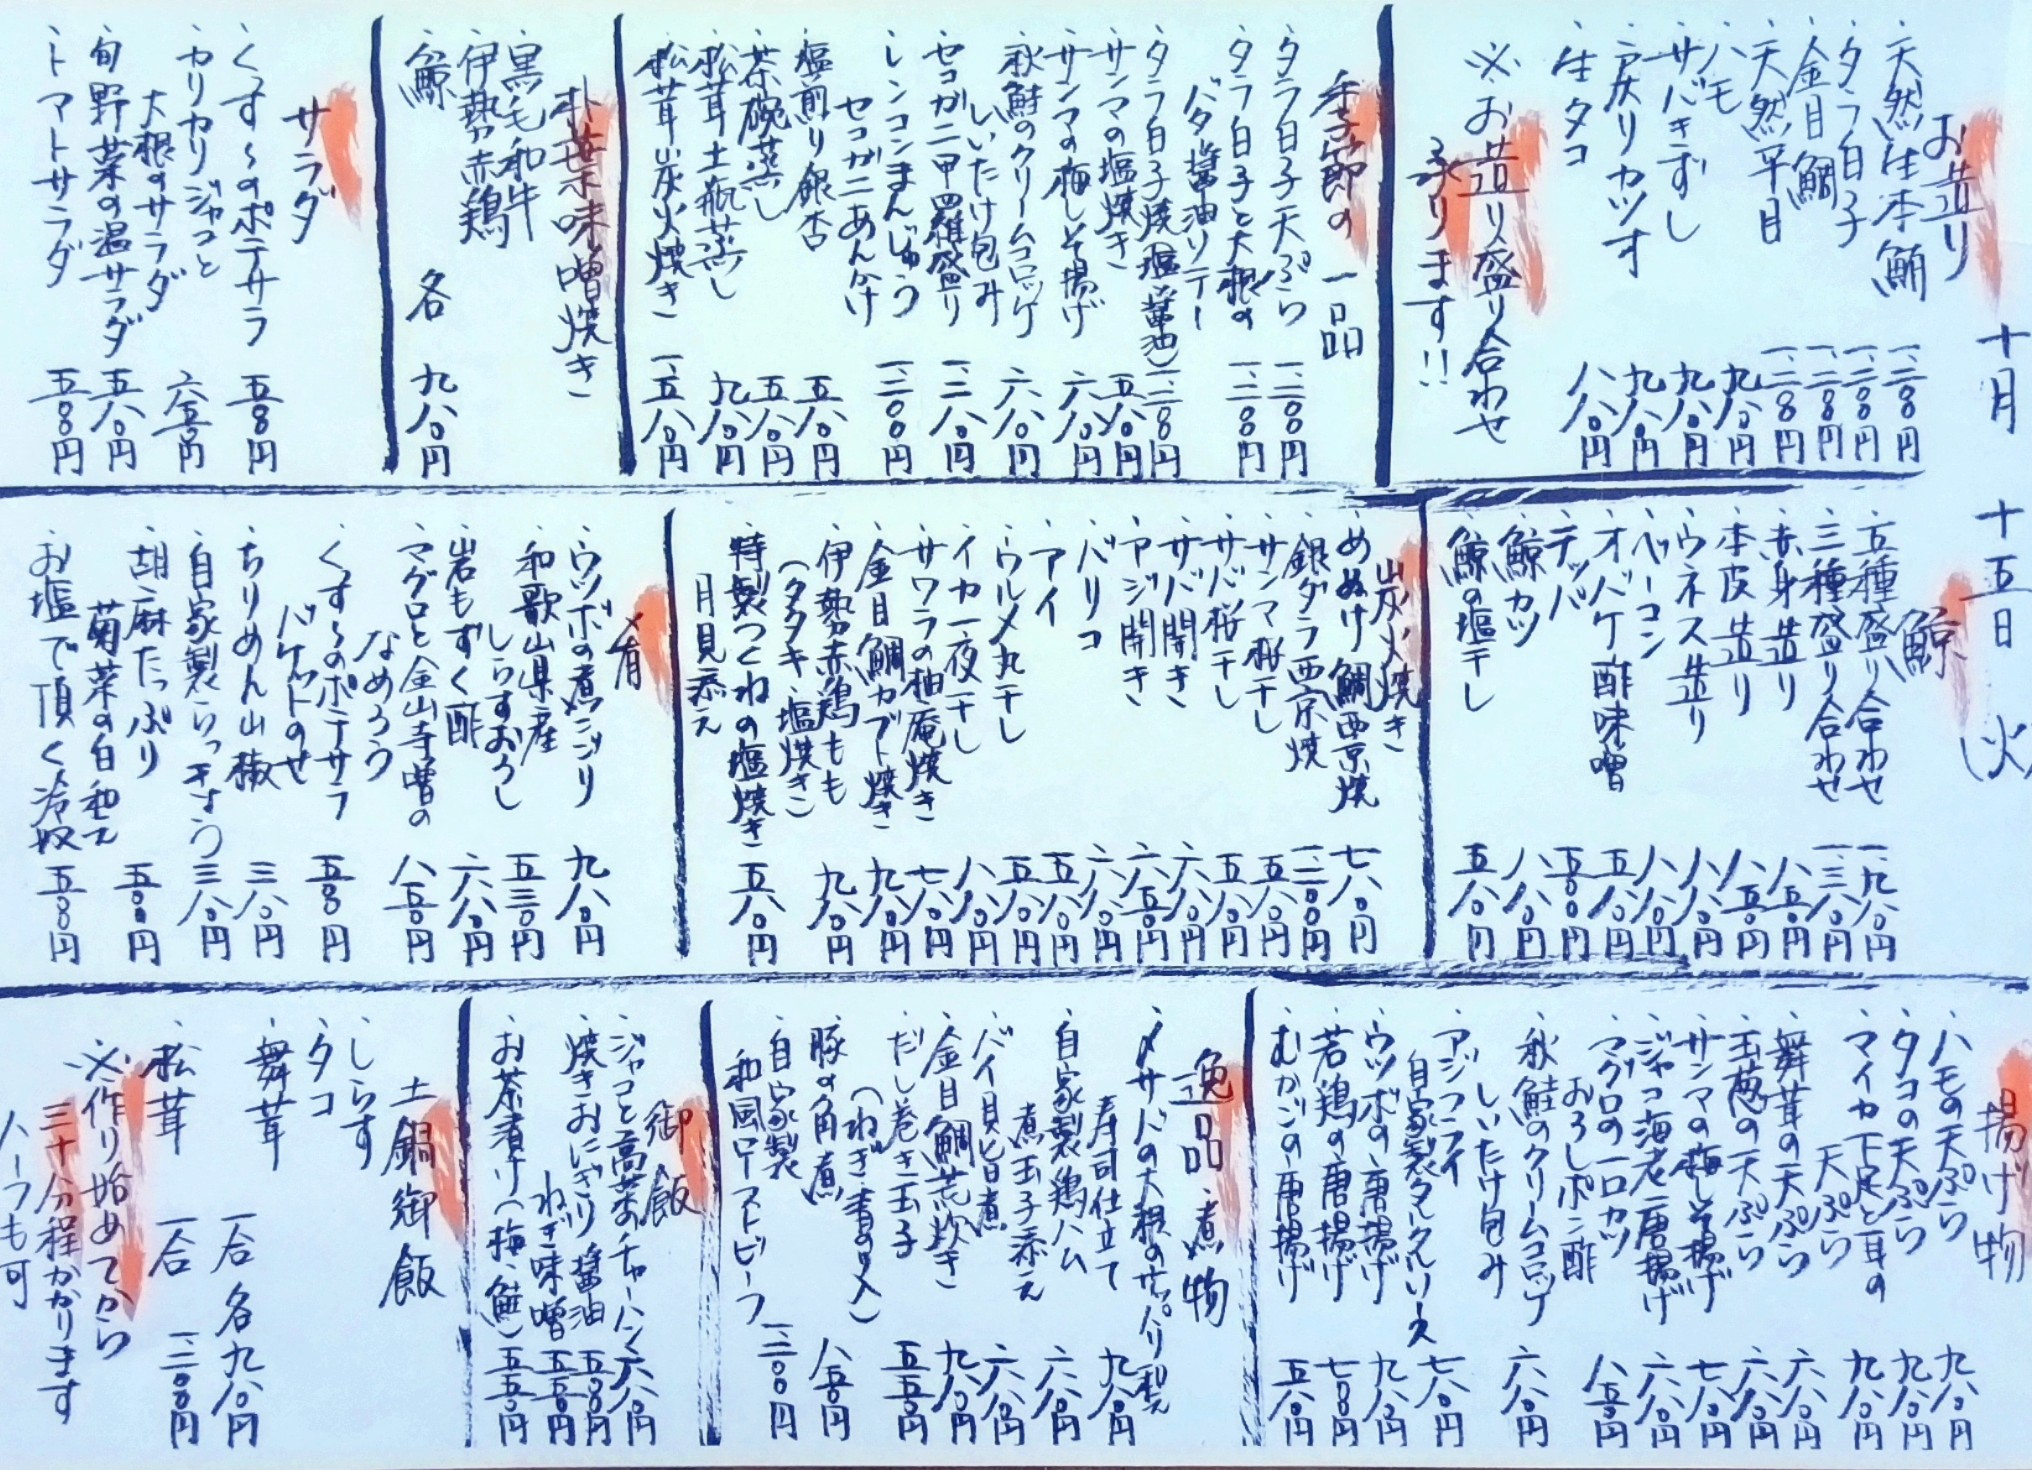 十月 十五日 (火)
お造り
・天然生本鮪 一、二八〇円
・タラ白子 一、二八〇円
・金目鯛 一、二八〇円
・天然平目 一、二八〇円
・ハモ 九八〇円
・サバきずし 九八〇円
・戻りカツオ 九八〇円
・生タコ 八八〇円
※お造り盛り合わせ
承ります!!
季節の一品
・タラ白子天ぷら 一、二〇〇円
・タラ白子と大根の
バタ醤油ソテー 一、二八〇円
・タラ白子焼(塩・醤油) 一、二八〇円
・サンマの塩焼き 五八〇円
・サンマの梅しそ揚げ 六八〇円
・秋鮭のクリームコロッケ
しいたけ包み 六八〇円
・セコガニ甲羅盛り 一、二八〇円
・レンコンまんじゅう
セコガニあんかけ 一、二〇〇円
・塩煎り銀杏 五八〇円
・茶碗蒸し 五八〇円
・松茸土瓶蒸し 九八〇円
・松茸炭火焼き 一、五八〇円
朴葉味噌焼き
・黒毛和牛
・伊勢赤鶏
・鯨
各 九八〇円
サラダ
・くすくすのポテサラ 五八〇円
・カリカリジャコと
大根のサラダ 六五〇円
・旬野菜の温サラダ 五八〇円
・トマトサラダ 五八〇円
鯨
・五種盛り合わせ 一、九八〇円
・三種盛り合わせ 一、三八〇円
・赤身造り 八五〇円
・本皮造り 八五〇円
・ウネス造り 八八〇円
・ベーコン 八八〇円
・オバケ酢味噌 五八〇円
・テッパ 五八〇円
・鯨カツ 八八〇円
・鯨の塩干し 五八〇円
炭火焼き
・めぬけ鯛西京焼 七八〇円
・銀ダラ西京焼 一、二〇〇円
・サンマ桜干し 五八〇円
・サバ桜干し 五八〇円
・サバ開き 六八〇円
・アジ開き 六五〇円
・バリコ 六八〇円
・アイ 五八〇円
・ウルメ丸干し 五八〇円
・イカ一夜干し 八八〇円
・サワラの柚庵焼き 七八〇円
・金目鯛カブト焼き 九八〇円
・伊勢赤鶏もも
(タタキ・塩焼き) 九八〇円
・特製つくねの塩焼き
月見添え 五八〇円
〆肴
・ウツボの煮こごり 九八〇円
・和歌山県産
しらすおろし 五三〇円
・岩もずく酢 六八〇円
・マグロと金山寺噌の
なめろう 八五〇円
・くすくすのポテサラ
バケットのせ 五八〇円
・ちりめん山椒 三八〇円
・自家製らっきょう 三八〇円
・胡麻たっぷり
菊菜の白和え 五八〇円
・お塩で頂く冷奴 五八〇円
揚げ物
・ハモの天ぷら 九八〇円
・タコの天ぷら 九八〇円
・マイカ下足と耳の
天ぷら 九八〇円
・舞茸の天ぷら 六八〇円
・玉葱の天ぷら 五八〇円
・サンマの梅しそ揚げ 七八〇円
・ジャコ海老唐揚げ 六八〇円
・マグロの一口カツ
おろしポン酢 八五〇円
・秋鮭のクリームコロッケ
しいたけ包み 六八〇円
・アジフライ
自家製タルタルソース 七八〇円
・ウツボの唐揚げ 九八〇円
・若鶏の唐揚げ 七八〇円
・むかごの唐揚げ 五八〇円
逸品・煮物
・〆サバの大根のサッパリ和え
寿司仕立て 九八〇円
・自家製鶏ハム
煮玉子添え 六八〇円
・バイ貝旨煮 六八〇円
・金目鯛荒炊き 九八〇円
・だし巻き玉子
(ねぎ・青のり入) 五五〇円
・豚の角煮 八五〇円
・自家製
和風ローストビーフ 一、二〇〇円
御飯
・ジャコと高菜のチャーハン 六八〇円
・焼きおにぎり 醤油 五〇〇円
ねぎ味噌 五五〇円
・お茶漬け(梅・鮭) 五五〇円
土鍋御飯
・しらす
・タコ
・舞茸 一合 各九八〇円
・松茸 一合 一、二〇〇円
※作り始めてから
三十分程かかります
ハーフも可